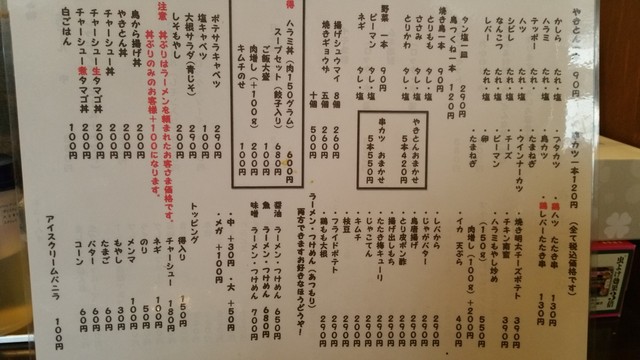 やきとん一本 90円
かしら たれ・塩
ハツ たれ・塩
ハラミ たれ・塩
テッポー たれ・塩
シビレ たれ・塩
ナンコツ たれ・塩
レバー たれ・塩
タン塩一皿 290円
鳥つくね一本 120円
焼き鳥一本 90円
とりもも タレ・塩
ささみ タレ・塩
とりかわ タレ・塩
野菜 一本 90円
ピーマン タレ・塩
ネギ タレ・塩
揚げシュウマイ 8個 260円
焼きギョウザ 五個 260円
十個 500円
ハラミ丼（肉150グラム） 600円
スープセット（餃子入り） 680円
ご飯大盛 100円
肉増し（+100g） 200円
キムチのせ 100円
ポテサラキャベツ 290円
塩キャベツ 100円
大根サラダ（青じそ） 290円
しそもやし 200円
注意 丼ぶりはラーメンを頼まれたお客さま価格です。
丼ぶりのみのお客様+100になります。
鳥から揚げ丼 200円
やきとん丼 200円
チャーシュー丼 200円
チャーシュー生タマゴ丼 200円
チャーシュー煮タマゴ丼 200円
白ごはん 100円
串カツ一本120円 （全て税込価格です）
・つタカツ
・鶏カツ
・ウインナーカツ
・チーズ
・ピーマン
・卵
・たまねぎ
・たまねぎ
・鶏ハツ たたき串 130円
・鶏レバーたたき串 130円
・焼き明太チーズポテト 390円
・チキン南蛮 390円
・ハラミもやし炒め
（150g） 550円
肉増し（100g）+200円
・イカ 天ぷら 400円
やきとんおまかせ
5本420円
串カツ おまかせ
5本550円
・レバから 290円
・じゃがバター 290円
・鳥唐揚げ 290円
・とり皮ポン酢 290円
・揚げ出しもち 290円
・たたき梅キューリ 290円
・じゃこてん 290円
・キムチ 200円
・枝豆 290円
・フライドポテト 290円
・鶏もも大根 290円
ラーメン・つけめん（あつもり）
両方できますお好きなほうどうぞ！
醤油 ラーメン・つけめん 650円
魚 ラーメン・つけめん 680円
味噌 ラーメン・つけめん 700円
・中 +30円 ・大 +50円
・メガ +100円
トッピング
得入り 150円
チャーシュー 180円
ネギ 100円
のり 50円
メンマ 100円
もやし 30円
たまご 60円
バター 60円
コーン 60円
アイスクリームバニラ 100円